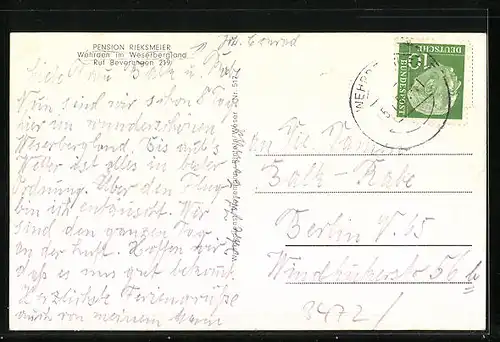 PENSION RIEKSMEIER
Wehrden im Weserbergland
Ruf Beverungen 219
Liebe Frau Balz u. Kate
Nun sind wir schon 8 Tage
hier im wunderschönen
Weserbergland. Bis aufs
Wetter ist alles in bester
Ordnung. Über den Flug
bin ich enttäuscht. Wir
sind den ganzen Tag
an der Luft. Hoffen wir
daß es uns gut bekommt
Herzlichste Feriengrüße
auch von meinem Mann
DEUTSCHE
BUNDESPOST
10
WEHRDEN
An die Familie
Balz-Kate
Berlin N. 65
56 b
3472/